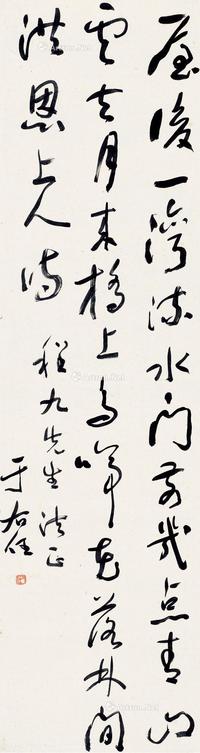 屋後一灣流水門前幾点青山
雲去月來橋上鳥啼花落林間
洪恩上人詩
九先生法正
于右任